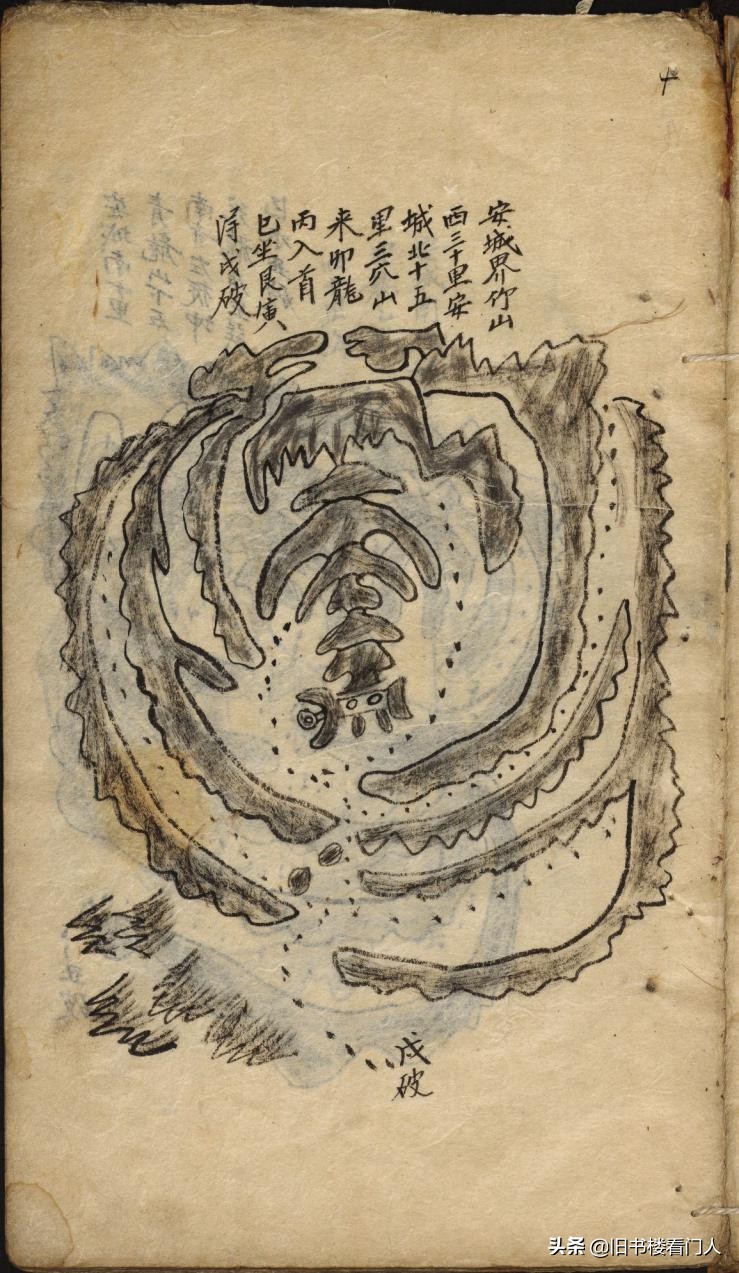 安城界竹山
西三十里安
城北十五
里三穴山
来卯龍
丙入首
巳坐艮寅
淂戌破
戌破
头条 @旧书楼看门人